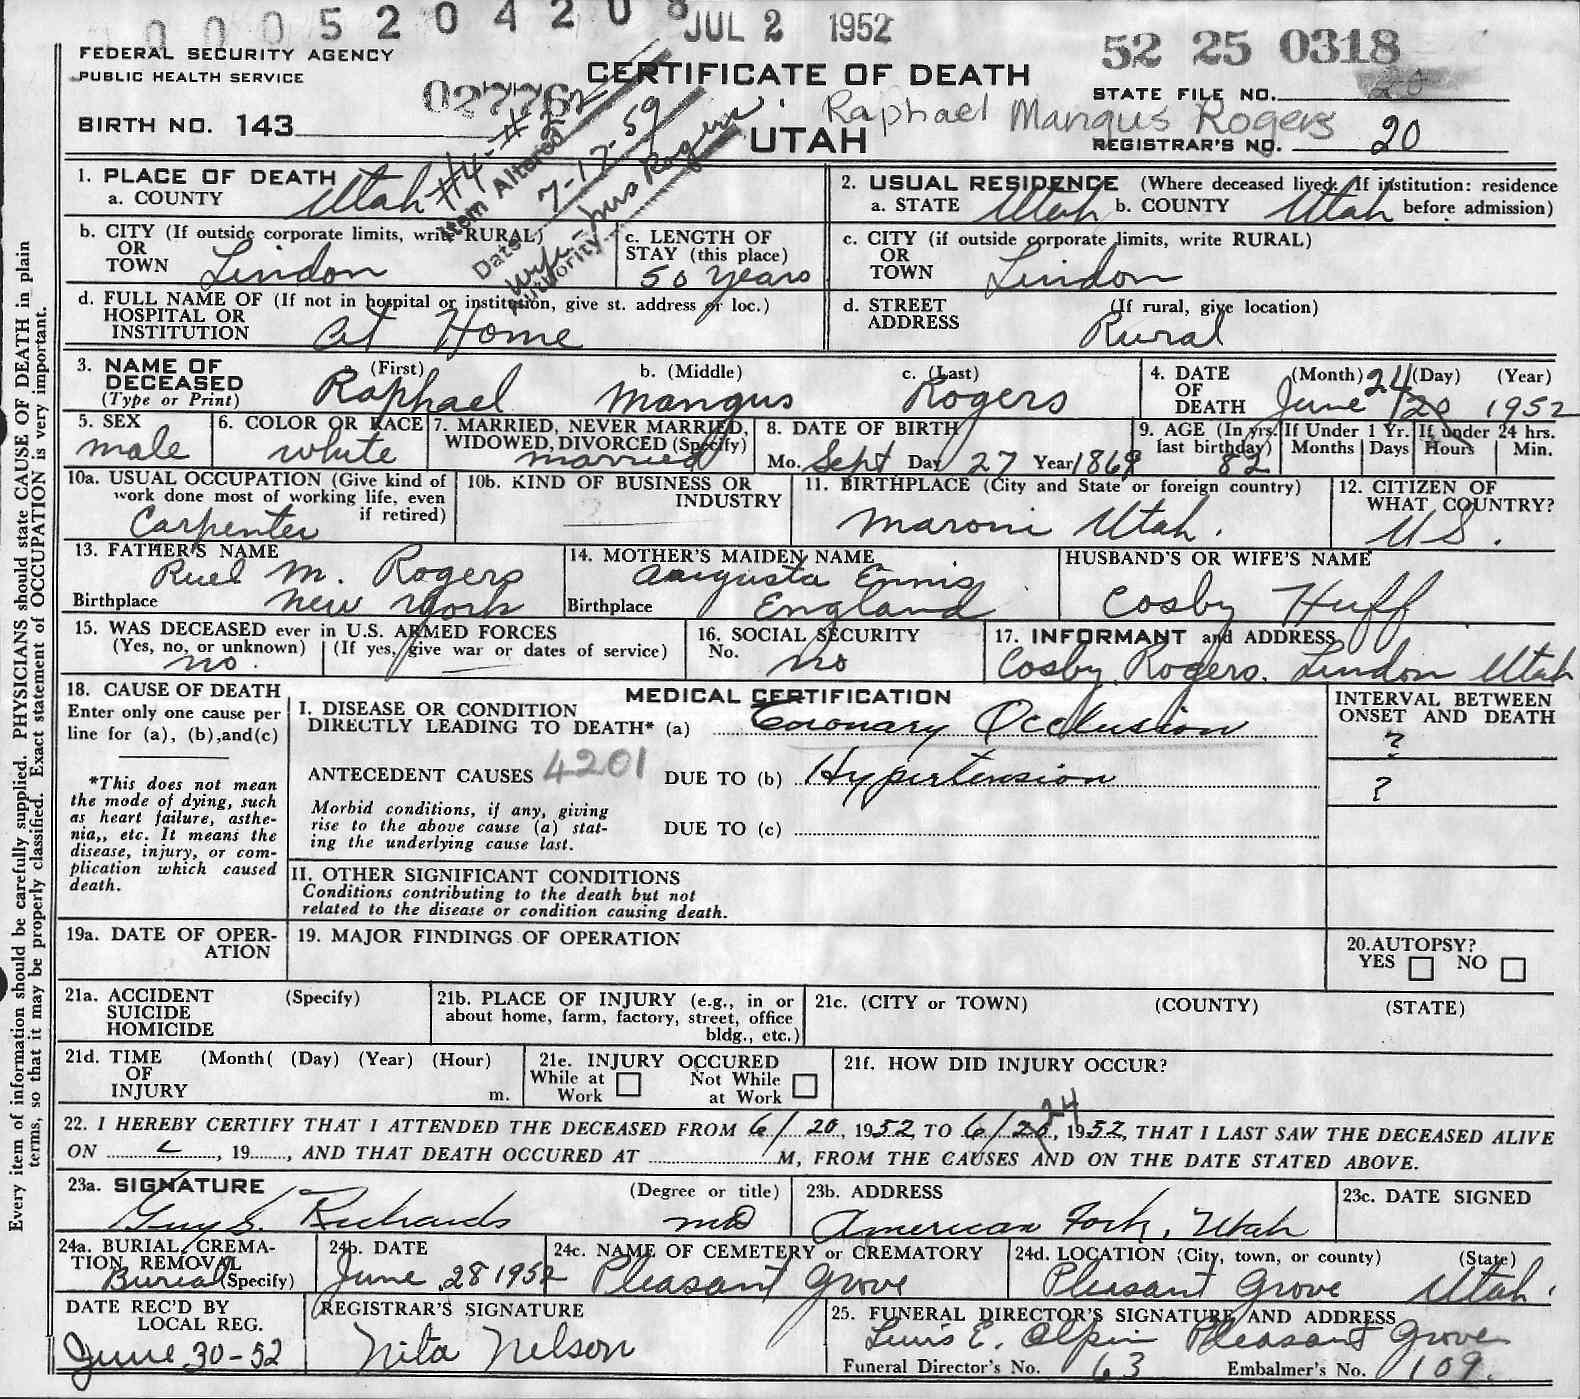 0 0 0 5 2 0 4 2 0 8 JUL 2 1952
52 25 0318
FEDERAL SECURITY AGENCY
PUBLIC HEALTH SERVICE
CERTIFICATE OF DEATH
STATE FILE NO. 20
BIRTH NO. 143
UTAH
Raphael Mangus Rogers
REGISTRAR'S NO. 20
Item Altered
Date 7-17-59
Authority Wife - Mrs Rogers
1. PLACE OF DEATH
a. COUNTY Utah
2. USUAL RESIDENCE (Where deceased lived. If institution: residence before admission)
a. STATE Utah b. COUNTY Utah
b. CITY (If outside corporate limits, write RURAL)
OR
TOWN Lindon
c. LENGTH OF
STAY (this place)
50 years
c. CITY (if outside corporate limits, write RURAL)
OR
TOWN Lindon
d. FULL NAME OF (If not in hospital or institution, give st. address or loc.)
HOSPITAL OR
INSTITUTION At Home
d. STREET (If rural, give location)
ADDRESS Rural
3. NAME OF
DECEASED
(Type or Print)
a. (First) b. (Middle) c. (Last)
Raphael Mangus Rogers
4. DATE (Month) (Day) (Year)
OF
DEATH June 24 20 1952
5. SEX
male
6. COLOR OR RACE
white
7. MARRIED, NEVER MARRIED,
WIDOWED, DIVORCED (Specify)
married
8. DATE OF BIRTH
Mo. Sept Day 27 Year 1869
9. AGE (In yrs. last birthday) 82
If Under 1 Yr. If under 24 hrs.
Months Days Hours Min.
10a. USUAL OCCUPATION (Give kind of
work done most of working life, even
if retired)
Carpenter
10b. KIND OF BUSINESS OR
INDUSTRY
11. BIRTHPLACE (City and State or foreign country)
Maroni Utah.
12. CITIZEN OF
WHAT COUNTRY?
U.S.
13. FATHER'S NAME
Ruel M. Rogers
Birthplace New York
14. MOTHER'S MAIDEN NAME
Augusta Ennis
Birthplace England
HUSBAND'S OR WIFE'S NAME
Cosby Huff
15. WAS DECEASED ever in U.S. ARMED FORCES
(Yes, no, or unknown) (If yes, give war or dates of service)
no.
16. SOCIAL SECURITY
No. no
17. INFORMANT and ADDRESS
Cosby Rogers. Lindon Utah
18. CAUSE OF DEATH
Enter only one cause per
line for (a), (b),and(c)
*This does not mean
the mode of dying, such
as heart failure, asthe-
nia,, etc. It means the
disease, injury, or com-
plication which caused
death.
MEDICAL CERTIFICATION
I. DISEASE OR CONDITION
DIRECTLY LEADING TO DEATH* (a) Coronary Occlusion
ANTECEDENT CAUSES 4201 DUE TO (b) Hypertension
Morbid conditions, if any, giving
rise to the above cause (a) stat-
ing the underlying cause last.
DUE TO (c)
INTERVAL BETWEEN
ONSET AND DEATH
?
?
II. OTHER SIGNIFICANT CONDITIONS
Conditions contributing to the death but not
related to the disease or condition causing death.
19a. DATE OF OPER-
ATION
19. MAJOR FINDINGS OF OPERATION
20.AUTOPSY?
YES NO
21a. ACCIDENT (Specify)
SUICIDE
HOMICIDE
21b. PLACE OF INJURY (e.g., in or
about home, farm, factory, street, office
bldg., etc.)
21c. (CITY or TOWN) (COUNTY) (STATE)
21d. TIME (Month( (Day) (Year) (Hour)
OF
INJURY m.
21e. INJURY OCCURED
While at Work Not While at Work
21f. HOW DID INJURY OCCUR?
22. I HEREBY CERTIFY THAT I ATTENDED THE DECEASED FROM 6/20, 1952, TO 6/20 24, 1952, THAT I LAST SAW THE DECEASED ALIVE
ON , 19 , AND THAT DEATH OCCURED AT M, FROM THE CAUSES AND ON THE DATE STATED ABOVE.
23a. SIGNATURE (Degree or title)
Guy S. Richards MD
23b. ADDRESS
American Fork, Utah
23c. DATE SIGNED
24a. BURIAL, CREMA-
TION, REMOVAL
Burial (Specify)
24b. DATE
June 28 1952
24c. NAME OF CEMETERY or CREMATORY
Pleasant Grove
24d. LOCATION (City, town, or county) (State)
Pleasant Grove Utah.
DATE REC'D BY
LOCAL REG.
June 30-52
REGISTRAR'S SIGNATURE
Nita Nelson
25. FUNERAL DIRECTOR'S SIGNATURE AND ADDRESS
E. Olpin Pleasant Grove
Funeral Director's No. 63 Embalmer's No. 109.
Every item of information should be carefully supplied. PHYSICIANS should state CAUSE OF DEATH in plain
terms, so that it may be properly classified. Exact statement of OCCUPATION is very important.